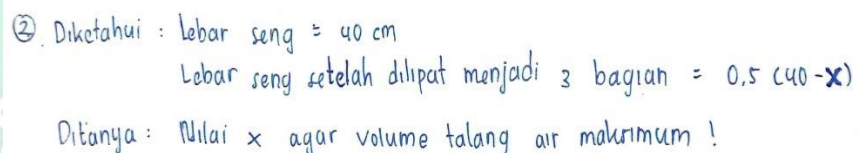 ② Diketahui : Lebar seng = 40 cm
Lebar seng setelah dilipat menjadi 3 bagian = 0,5 (40 - x)
Ditanya : Nilai x agar volume talang air maksimum !